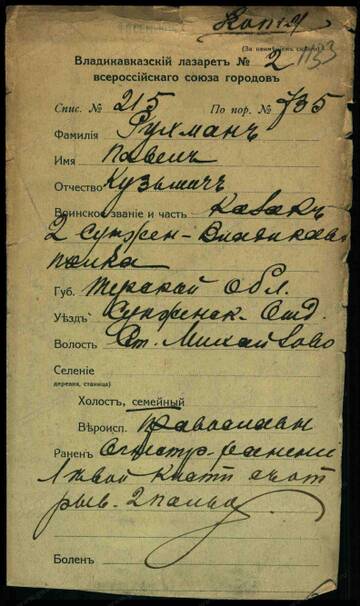 Копія
(За ненмѣніем склянк)
Владикавказскій лазаретъ № 2 1133
всероссійскаго союза городовъ
Спис. № 215 По пор. № 735
Фамилія Рухманъ
Имя Павелъ
Отчество Кузьмичъ
Воинское званіе и часть казакъ
2 Сунжен-Владикавк
полка
Губ. Терской Обл.
Уѣздъ Сунженск. Отд.
Волость Ст. Михайлово
Селеніе
деревня, станица)
Холостъ, семейный
Вѣроисп. Православн
Раненъ Огнестр. ранени
лѣвой кисти съ от
рыв. 2 пальца
Боленъ